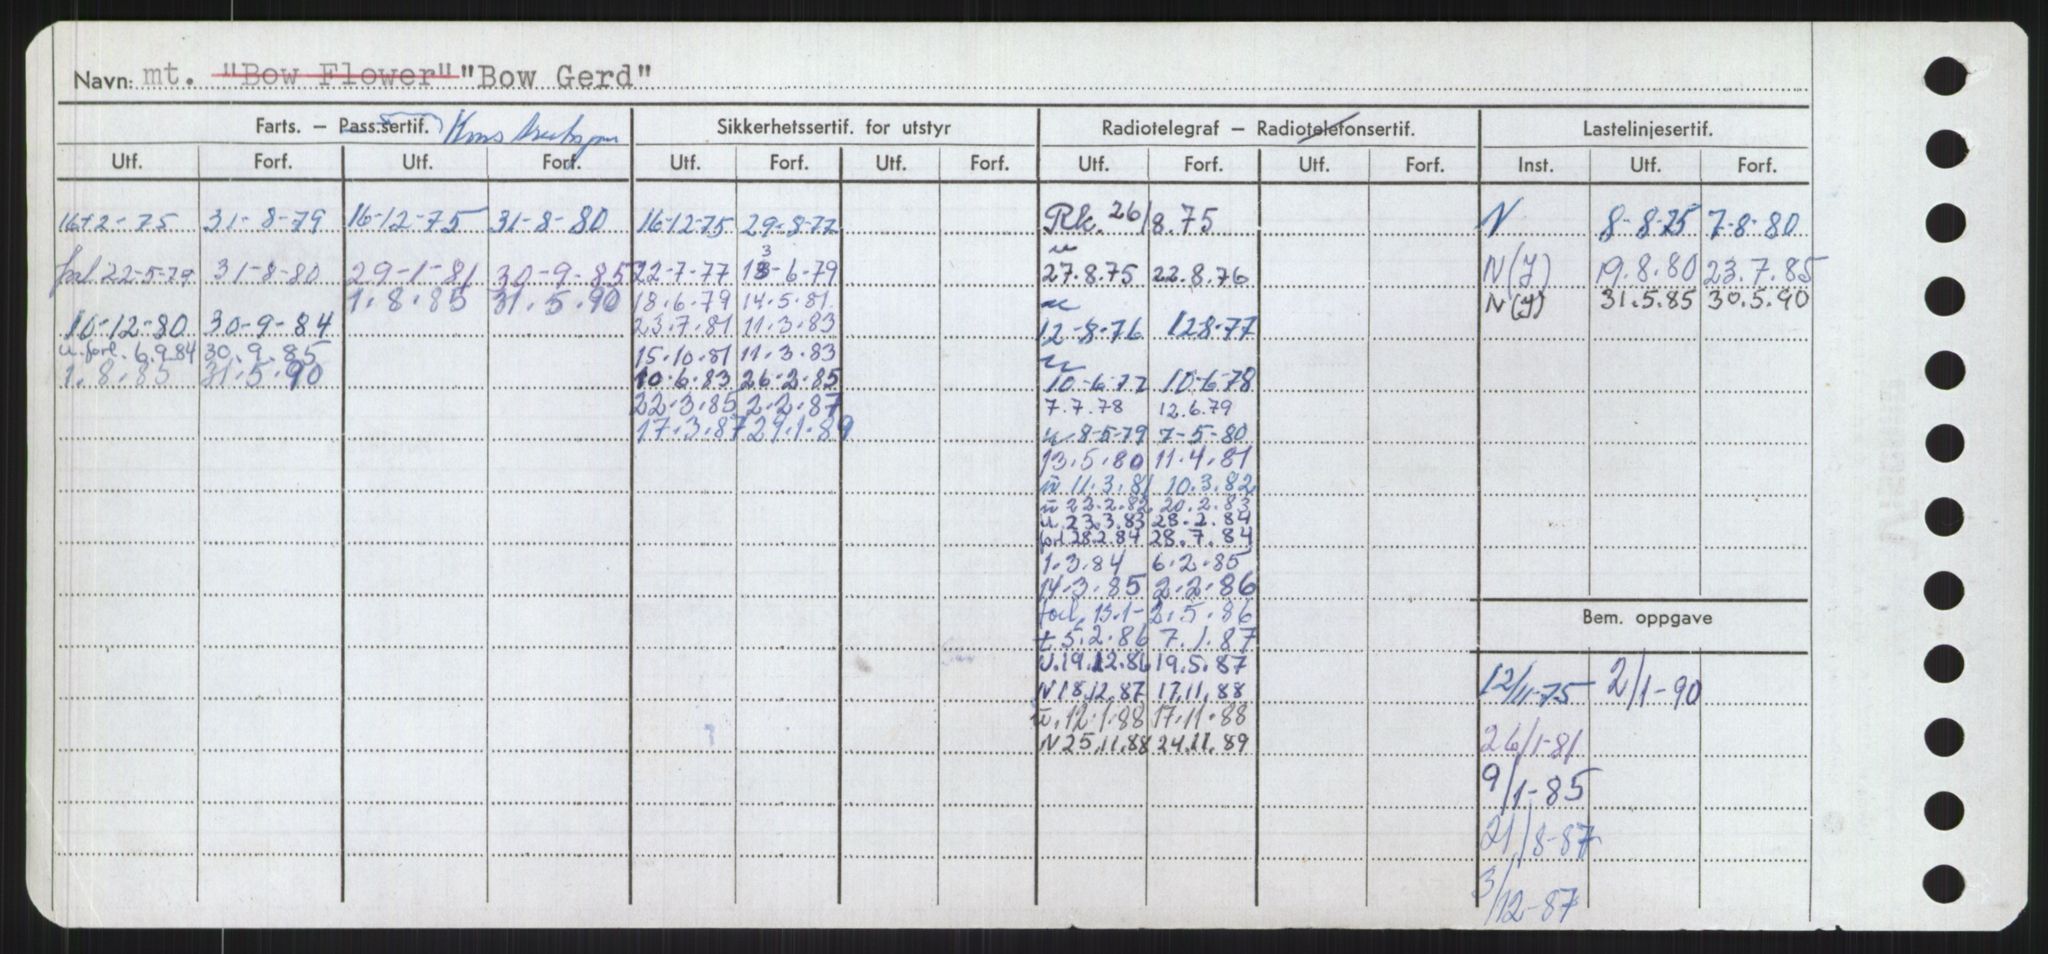 Navn: mt. "Bow Flower" "Bow Gerd"
Farts. – Pass.sertif. Sikkerhetssertif. for utstyr Radiotelegraf – Radiotelefonsertif. Lastelinjesertif.
Utf. Forf. Utf. Forf. Utf. Forf. Utf. Forf. Utf. Forf. Utf. Forf. Inst. Utf. Forf.
16-12-75 31-8-79 16-12-75 31-8-80 16-12-75 29-8-77 Rk. 26/8.75 N 8-8-75 7-8-80
22-5-79 31-8-80 29-1-81 30-9-85 22-7-77 13-6-79 27.8.75 22.8.76 N(J) 19.8.80 23.7.85
1.8.85 31.5.90 18.6.79 14.5.81 N(J) 31.5.85 30.5.90
16-12-80 30-9-84 23.7.81 11.3.83 12-8-76 12.8-77
u. forl. 6.9.84 30.9.85 15.10.81 11.3.83
1.8.85 31.5.90 10.6.83 26.2.85 10-6-77 10-6-78
22.3.85 2.2.87 7.7.78 12.6.79
17.3.87 29.1.89 u. 8-5-79 7-5-80
13.5.80 11.4.81
u 11.3.81 10.3.82
u 22.2.82 20.2.83
u. 23.3.83 28.2.84
28.2.84 28.7.84
1.3.84 6.2.85
14.3.85 2.2.86
forl. 13.1- 2.5.86
Bem. oppgave
t 5.2.86 7.1.87
U.19.12.86 19.5.87
N 18.12.87 17.11.88 12/11-75 2/1-90
u. 12.1.88 17.11.88
N 25.11.88 24.11.89 26/1-81
9/1-85
21/8-87
3/12-87